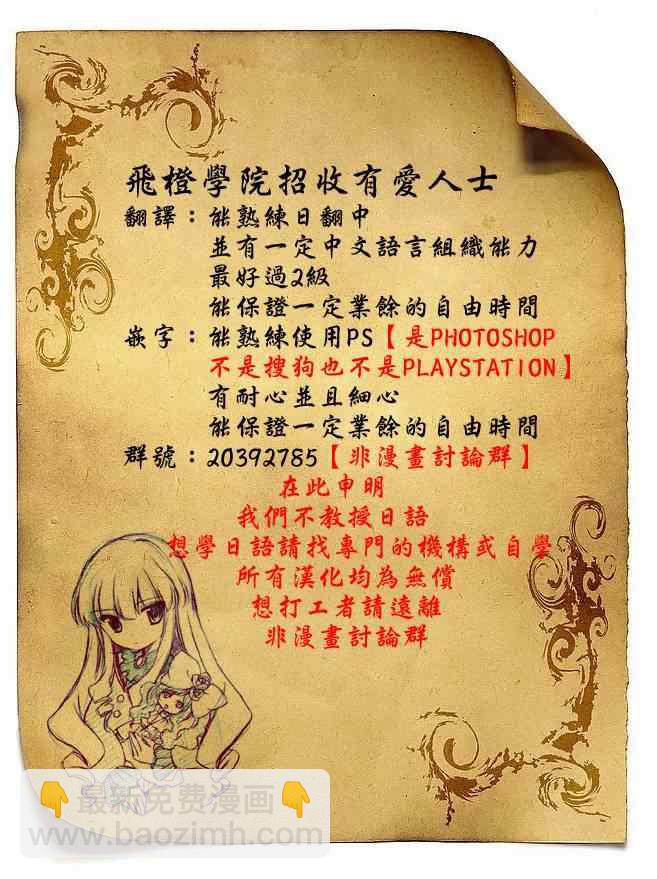 飛橙學院招收有愛人士
翻譯：能熟練日翻中
並有一定中文語言組織能力
最好過2級
能保證一定業餘的自由時間
嵌字：能熟練使用PS【是PHOTOSHOP
不是搜狗也不是PLAYSTATION】
有耐心並且細心
能保證一定業餘的自由時間
群號：20392785【非漫畫討論群】
在此申明
我們不教授日語
想學日語請找專門的機構或自學
所有漢化均為無償
想打工者請遠離
非漫畫討論群
👇最新免费漫画👇
www.baozimh.com